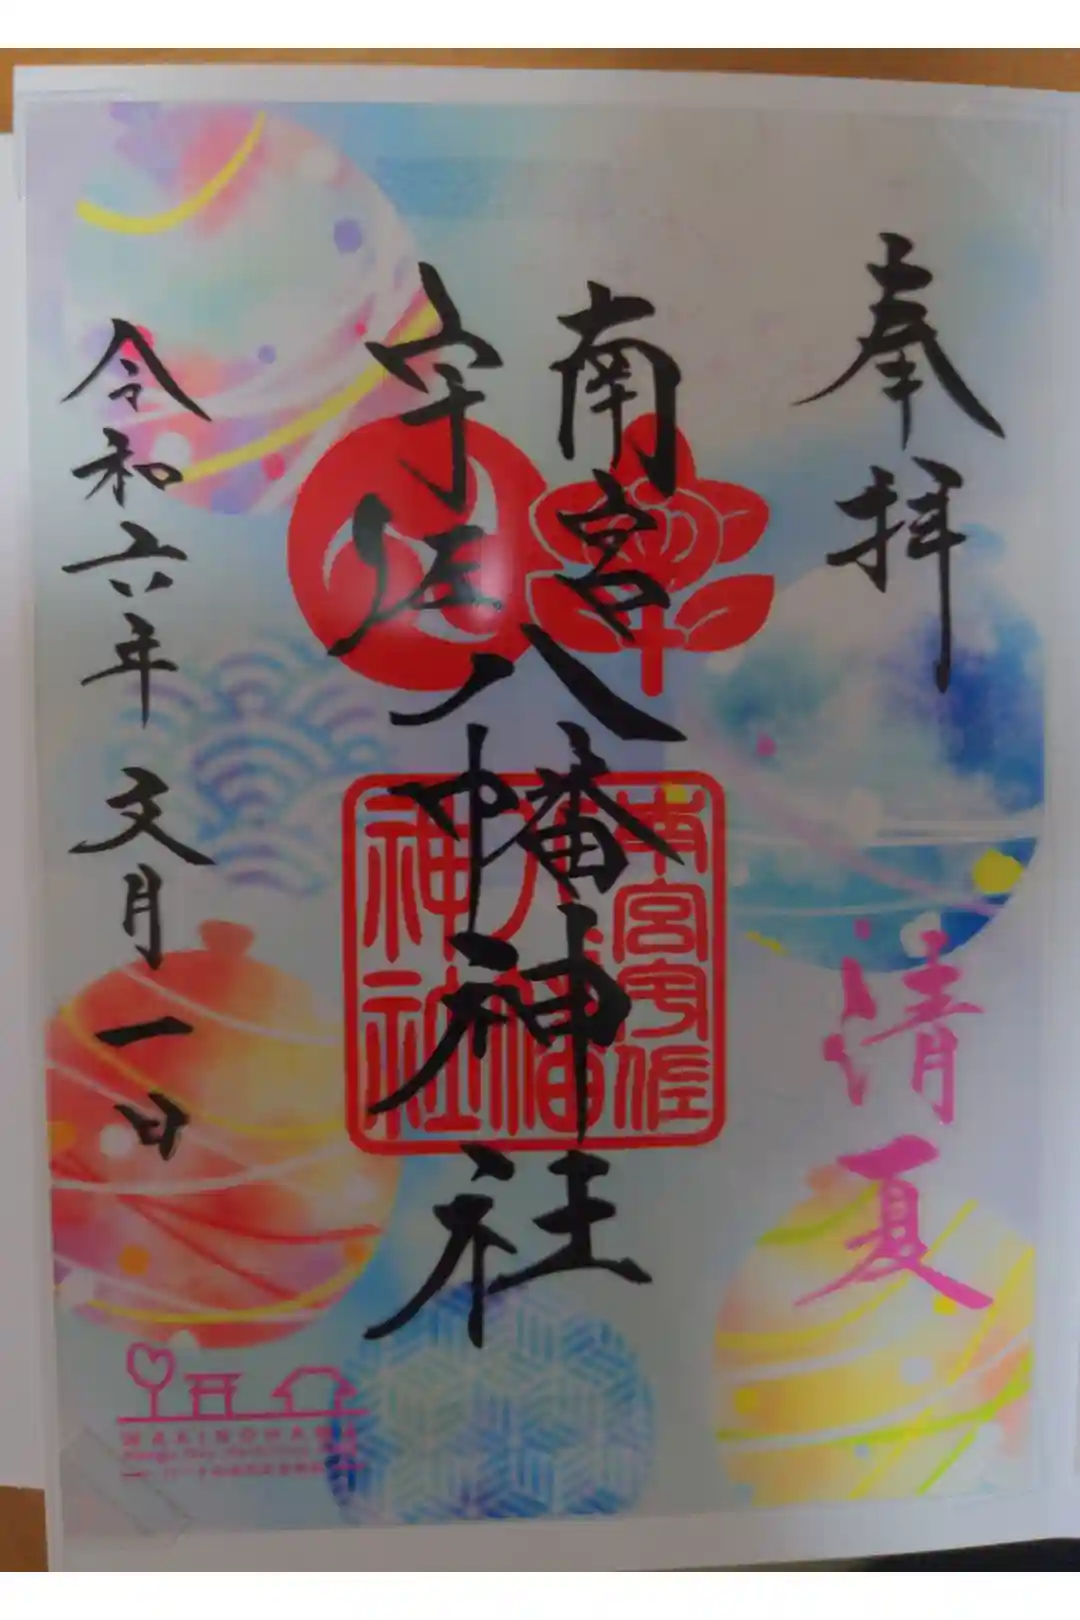 奉拝
清夏
南宮
宇佐
八幡神社
南宮宇佐
八幡
神社
令和六年 文月一日
WAKINOHAMA